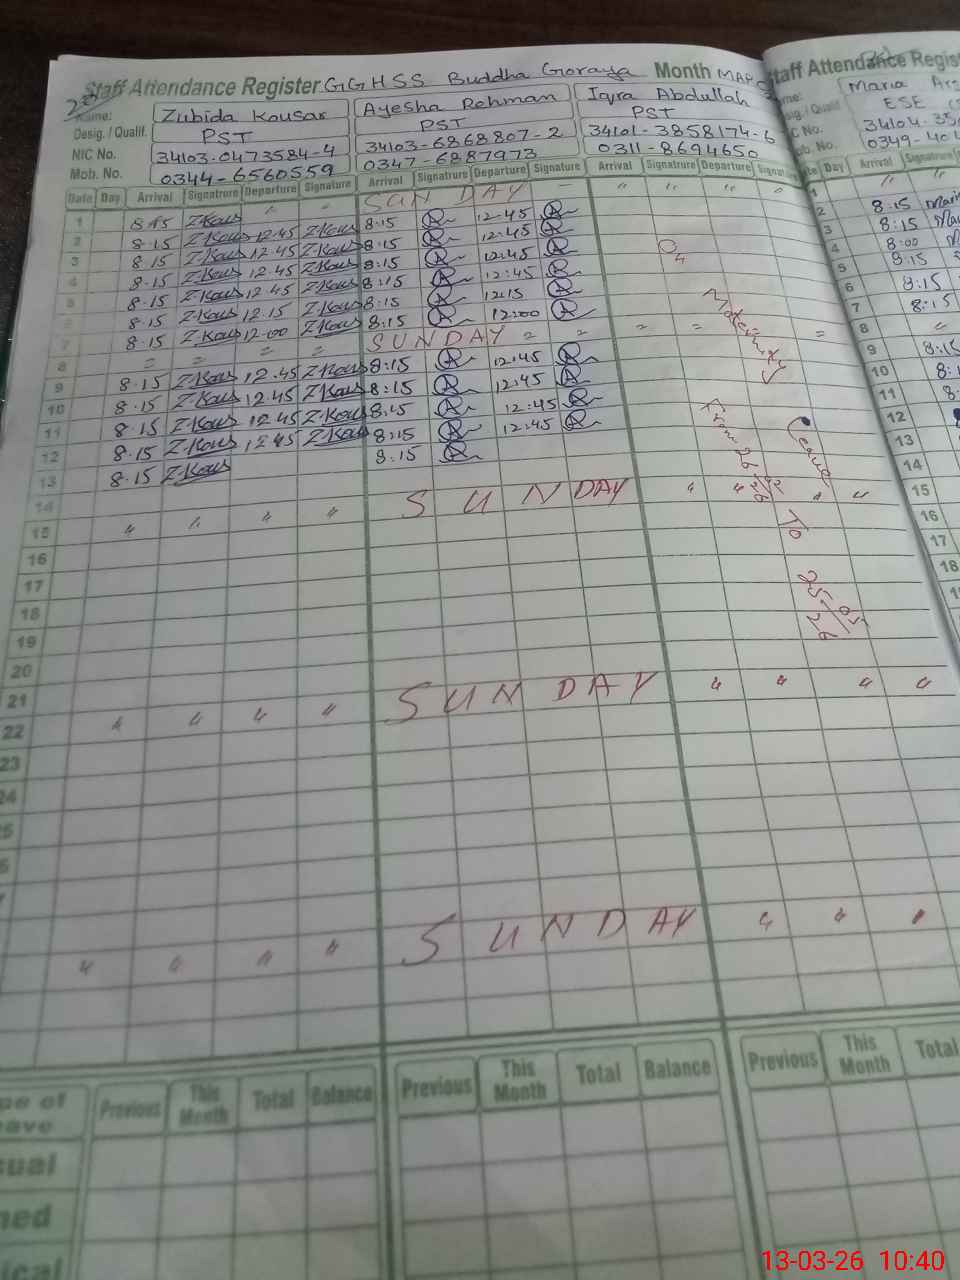 Staff Attendance Register GGHSS Buddha Goraya Month MAR
Name: Zubida Kousar Ayesha Rehman Iqra Abdullah
Desig. / Qualif. PST PST PST
NIC No. 34103-0473584-4 34103-6868807-2 34101-3858174-6
Mob. No. 0344-6560559 0347-6887973 0311-8694650
Date Day Arrival Signatrure Departure Signature Arrival Signatrure Departure Signature Arrival Signatrure Departure Signature
1 " " SUN DAY - " " " "
2 8:15 Z.Kous 12.45 Z.Kous 8:15 12:45
3 8.15 Z.Kous 12.45 Z.Kous 8:15 12:45
4 8.15 Z.Kous 12.45 Z.Kous 8:15 12:45
5 8.15 Z.Kous 12.45 Z.Kous 8:15 12:45
6 8.15 Z.Kous 12.15 Z.Kous 8:15 12:15
7 8.15 Z.Kous 12.00 Z.Kous 8:15 12:00
8 = = = = SUNDAY = = = = =
9 8.15 Z.Kous 12.45 Z.Kous 8:15 12:45
10 8.15 Z.Kous 12.45 Z.Kous 8:15 12:45
11 8.15 Z.Kous 12.45 Z.Kous 8:15 12:45
12 8.15 Z.Kous 12.45 Z.Kous 8:15 12:45
13 8.15 Z.Kous 8:15
14
15 " " " " SUNDAY " " " "
16
17
18
19
20
21
22 " " " " SUNDAY " " " "
23
24
" " " " SUNDAY " " " "
Maternity
Leave
From 26-02-26 To
25-05-26
Previous This Month Total Balance Previous This Month Total Balance Previous This Month Total
Staff Attendance
Maria
ESE
0349-
Day Arrival Signatrure
1 " "
2 8.15
3 8:15
4 8:00
5 8:15
6 8:15
7 8:15
8 "
9 8:15
10
11
12
13
14
15
16
17
18
13-03-26 10:40